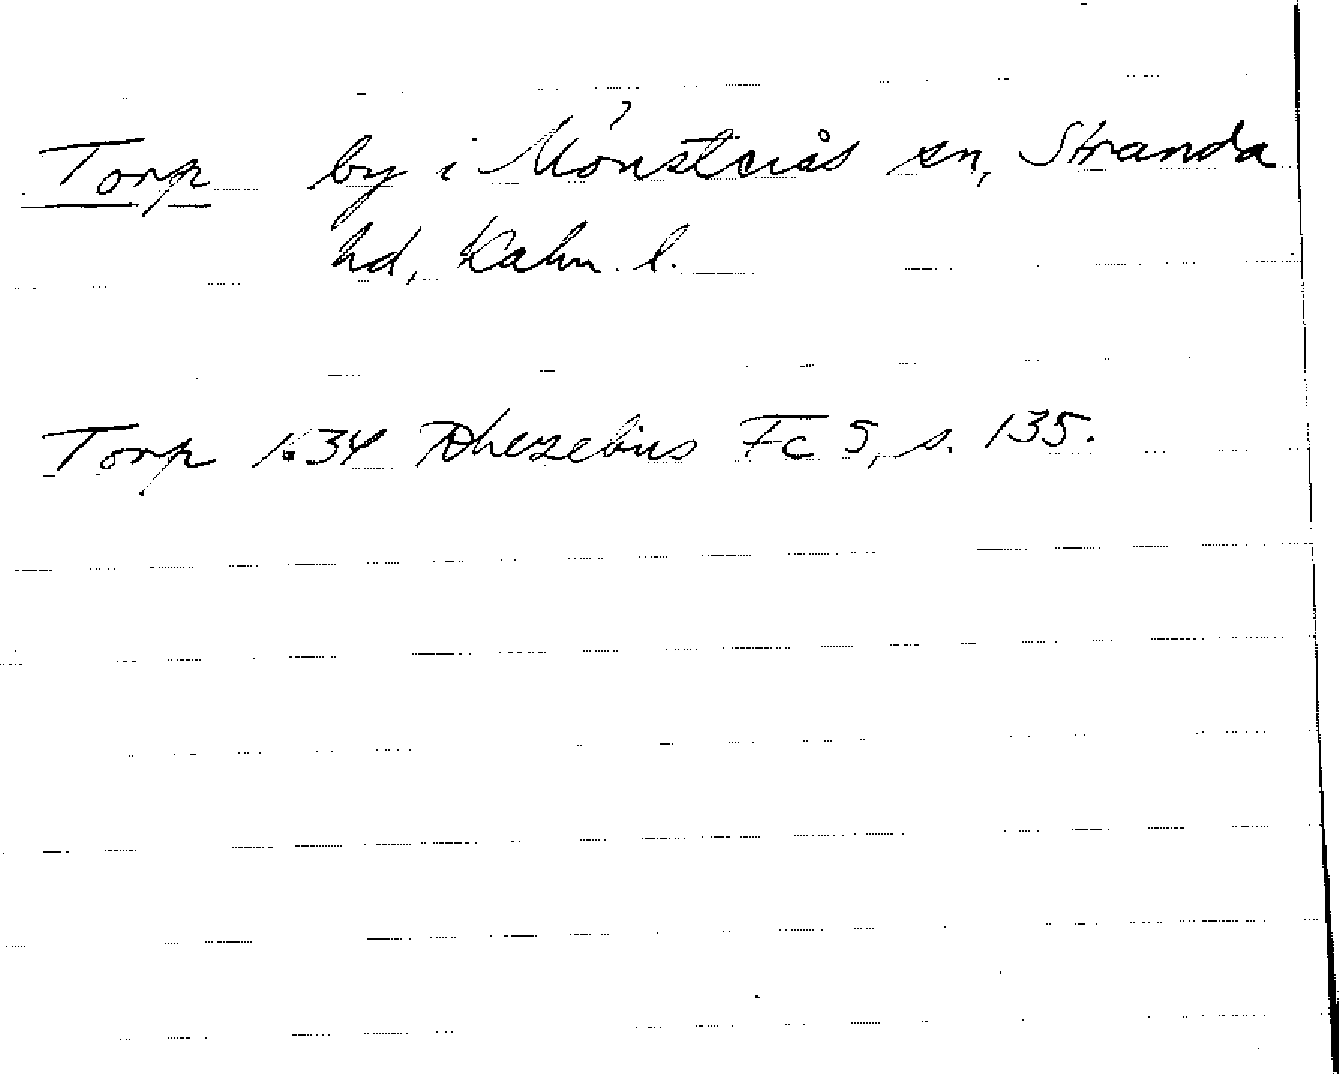 Torp by i Mönsterås sn, Stranda
hd, Kalm. l.
Torp 1634 Rhezelius Fc 5, s. 135.